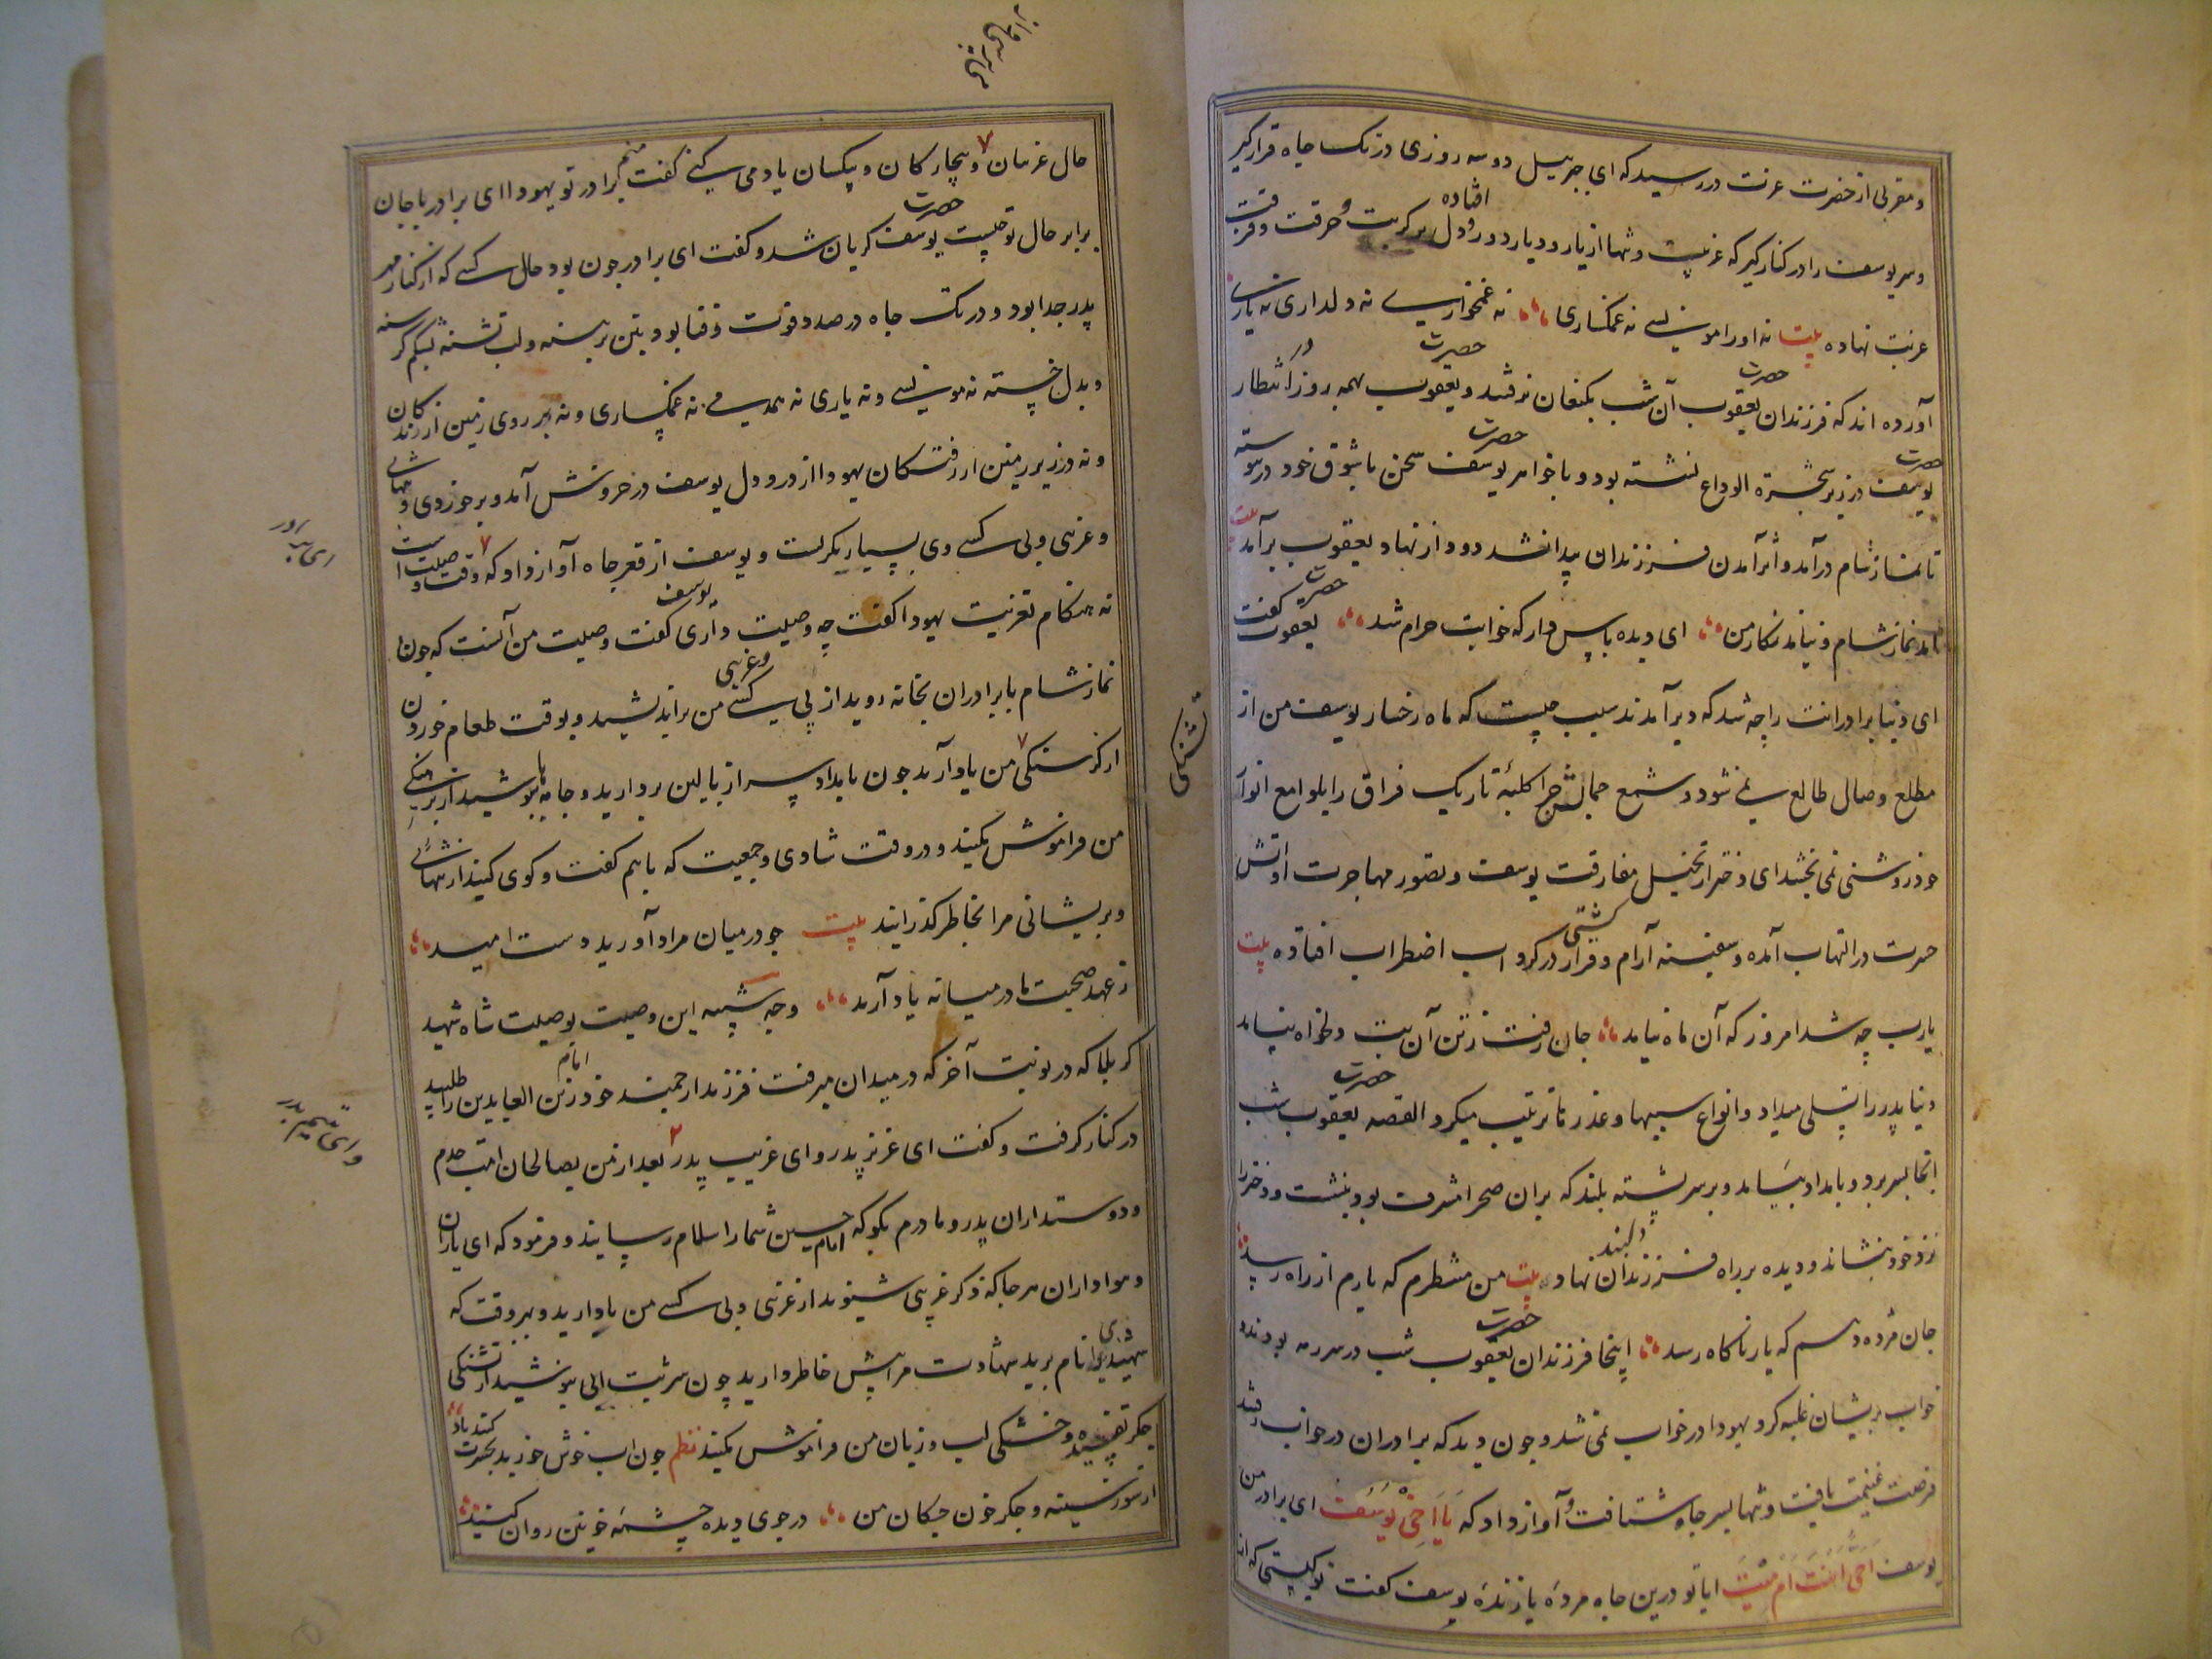 و مقربی از حضرت عزت در رسید که ای جبرییل دو سه روزی در تک چاه قرار گیر
و سر یوسف را در کنار گیر که غریبست و تنها از یار و دیار دور افتاده و دل بر کربت و حرقت و فرقت
غربت نهاده بیت نه او را مونسی نه غمگساری نه غمخواری نه دلداری نه یاری
آورده اند که فرزندان حضرت یعقوب آن شب بکنعان نرفتند و حضرت یعقوب همه روز در انتظار
حضرت یوسف در زیر شجرة الوداع نشسته بود و با خواهر حضرت یوسف سخن ما شوق خود در پیوسته
تا نماز شام درآمد و اثر آمدن فرزندان پیدا نشد دود از نهاد یعقوب برآمد بیت
آمد نماز شام و نیامد نگار من ای دیده پاس دار که خوابت حرام شد حضرت یعقوب گفت
ای دنیا برادرانت را چه شد که دیر آمدند سبب چیست که ماه رخسار یوسف من از
مطلع وصال طالع نمی شود و شمع جمالش چرا کلبهٔ تاریک فراق را بلوامع انوار
خود روشنی نمی بخشد ای دختر از تخیل مفارقت یوسف و تصور مهاجرت او آتش
حسرت در التهاب آمده و سفینه آرام و قرار کشتی در گرداب اضطراب افتاده بیت
یارب چه شد امروز که آن ماه نیامد جان رفت ز تن آن بت دلخواه نیامد
دنیا پدر را تسلی میداد و انواع سببها و عذرها ترتیب میکرد القصه حضرت یعقوب شب
آنجا بسر برد و بامداد بیامد و بر سر پشته بلند که بران صحرا مشرف بود بنشست و دختر را
نزد خود بنشاند و دیده بر راه فرزندان دلبند نهاد بیت من منتظرم که یارم از راه رسد
جان مژده دهم که یار ناگاه رسد اینجا فرزندان حضرت یعقوب شب در سر رمه بودند
خواب بریشان غلبه کرد یهودا در خواب نمی شد و چون دید که برادران در خواب رفتند
فرصت غنیمت یافت و تنها بسر چاه شتافت و آواز داد که یَا اَخِیْ یُوسَف ای برادر من
یوسف اَحَیٌّ اَنْتَ اَمْ مَیِّت آیا تو درین چاه مردهٔ یا زندهٔ یوسف گفت تو کیستی که از
حال غریبان و بیچارگان و بیکسان یاد می کنی گفت منم برادر تو یهودا ای برادر با جان
برابر حال تو چیست حضرت یوسف گریان شد و گفت ای برادر چون بود حال کسی که از کنار مهر
پدر جدا بود و در تک چاه در صدد فوت و فنا بود بتن برهنه و لب تشنه شکم گرسنه
و بدل خسته نه مونسی و نه یاری نه همدمی نه غمگساری و نه بر روی زمین از زندگان
و نه در زیر زمین از رفتگان یهودا از درد دل یوسف در خروش آمد و بر خوردی و تنهائی
و غریبی و بی کسی وی بسیار بگریست و یوسف از قعر چاه آواز داد که وقت وصیت است
نه هنگام تعزیت یهودا گفت چه وصیت داری یوسف گفت وصیت من آنست که چون
نماز شام با برادران بخانه روید از بی کسی و غریبی من براندیشید و بوقت طعام خوردن
از گرسنگی من یاد آرید چون بامداد سر از بالین بردارید و جامه ها بپوشید از برهنگی
من فراموش مکنید و در وقت شادی و جمعیت که با هم گفت و گوی کنید از تنهائی
و پریشانی مرا بخاطر گذرانید بیت چو در میان مراد آورید دست امید
ز عهد صحبت ما در میانه یاد آرید و چه شبیه این وصیت بوصیت شاه شهید
کربلا که در نوبت آخر که در میدان میرفت فرزند ارجمند خود امام زین العابدین را طلبید
در کنار گرفت و گفت ای عزیز پدر و ای غریب پدر بعد از من بصالحان امت جدم
و دوستداران پدر و مادرم بگو که امام حسین شما را سلام رسانید و فرمود که ای یاران
و هواداران هر جا که ذکر غریبی شنوید از غریبی و بی کسی من یاد آرید و بهر وقت که
شهیدی را نام برید شهادت مرا پیش خاطر دارید چون شربت آبی بنوشید از تشنگی
جگر تفسیده و خشکی لب و زبان من فراموش مکنید نظم چون آب خوش خورید بحسرت کنید یاد
از سوز سینه و جگر خون چکان من در جوی دیده چشمهٔ خونین روان کنید
تشنگی
ای برادر